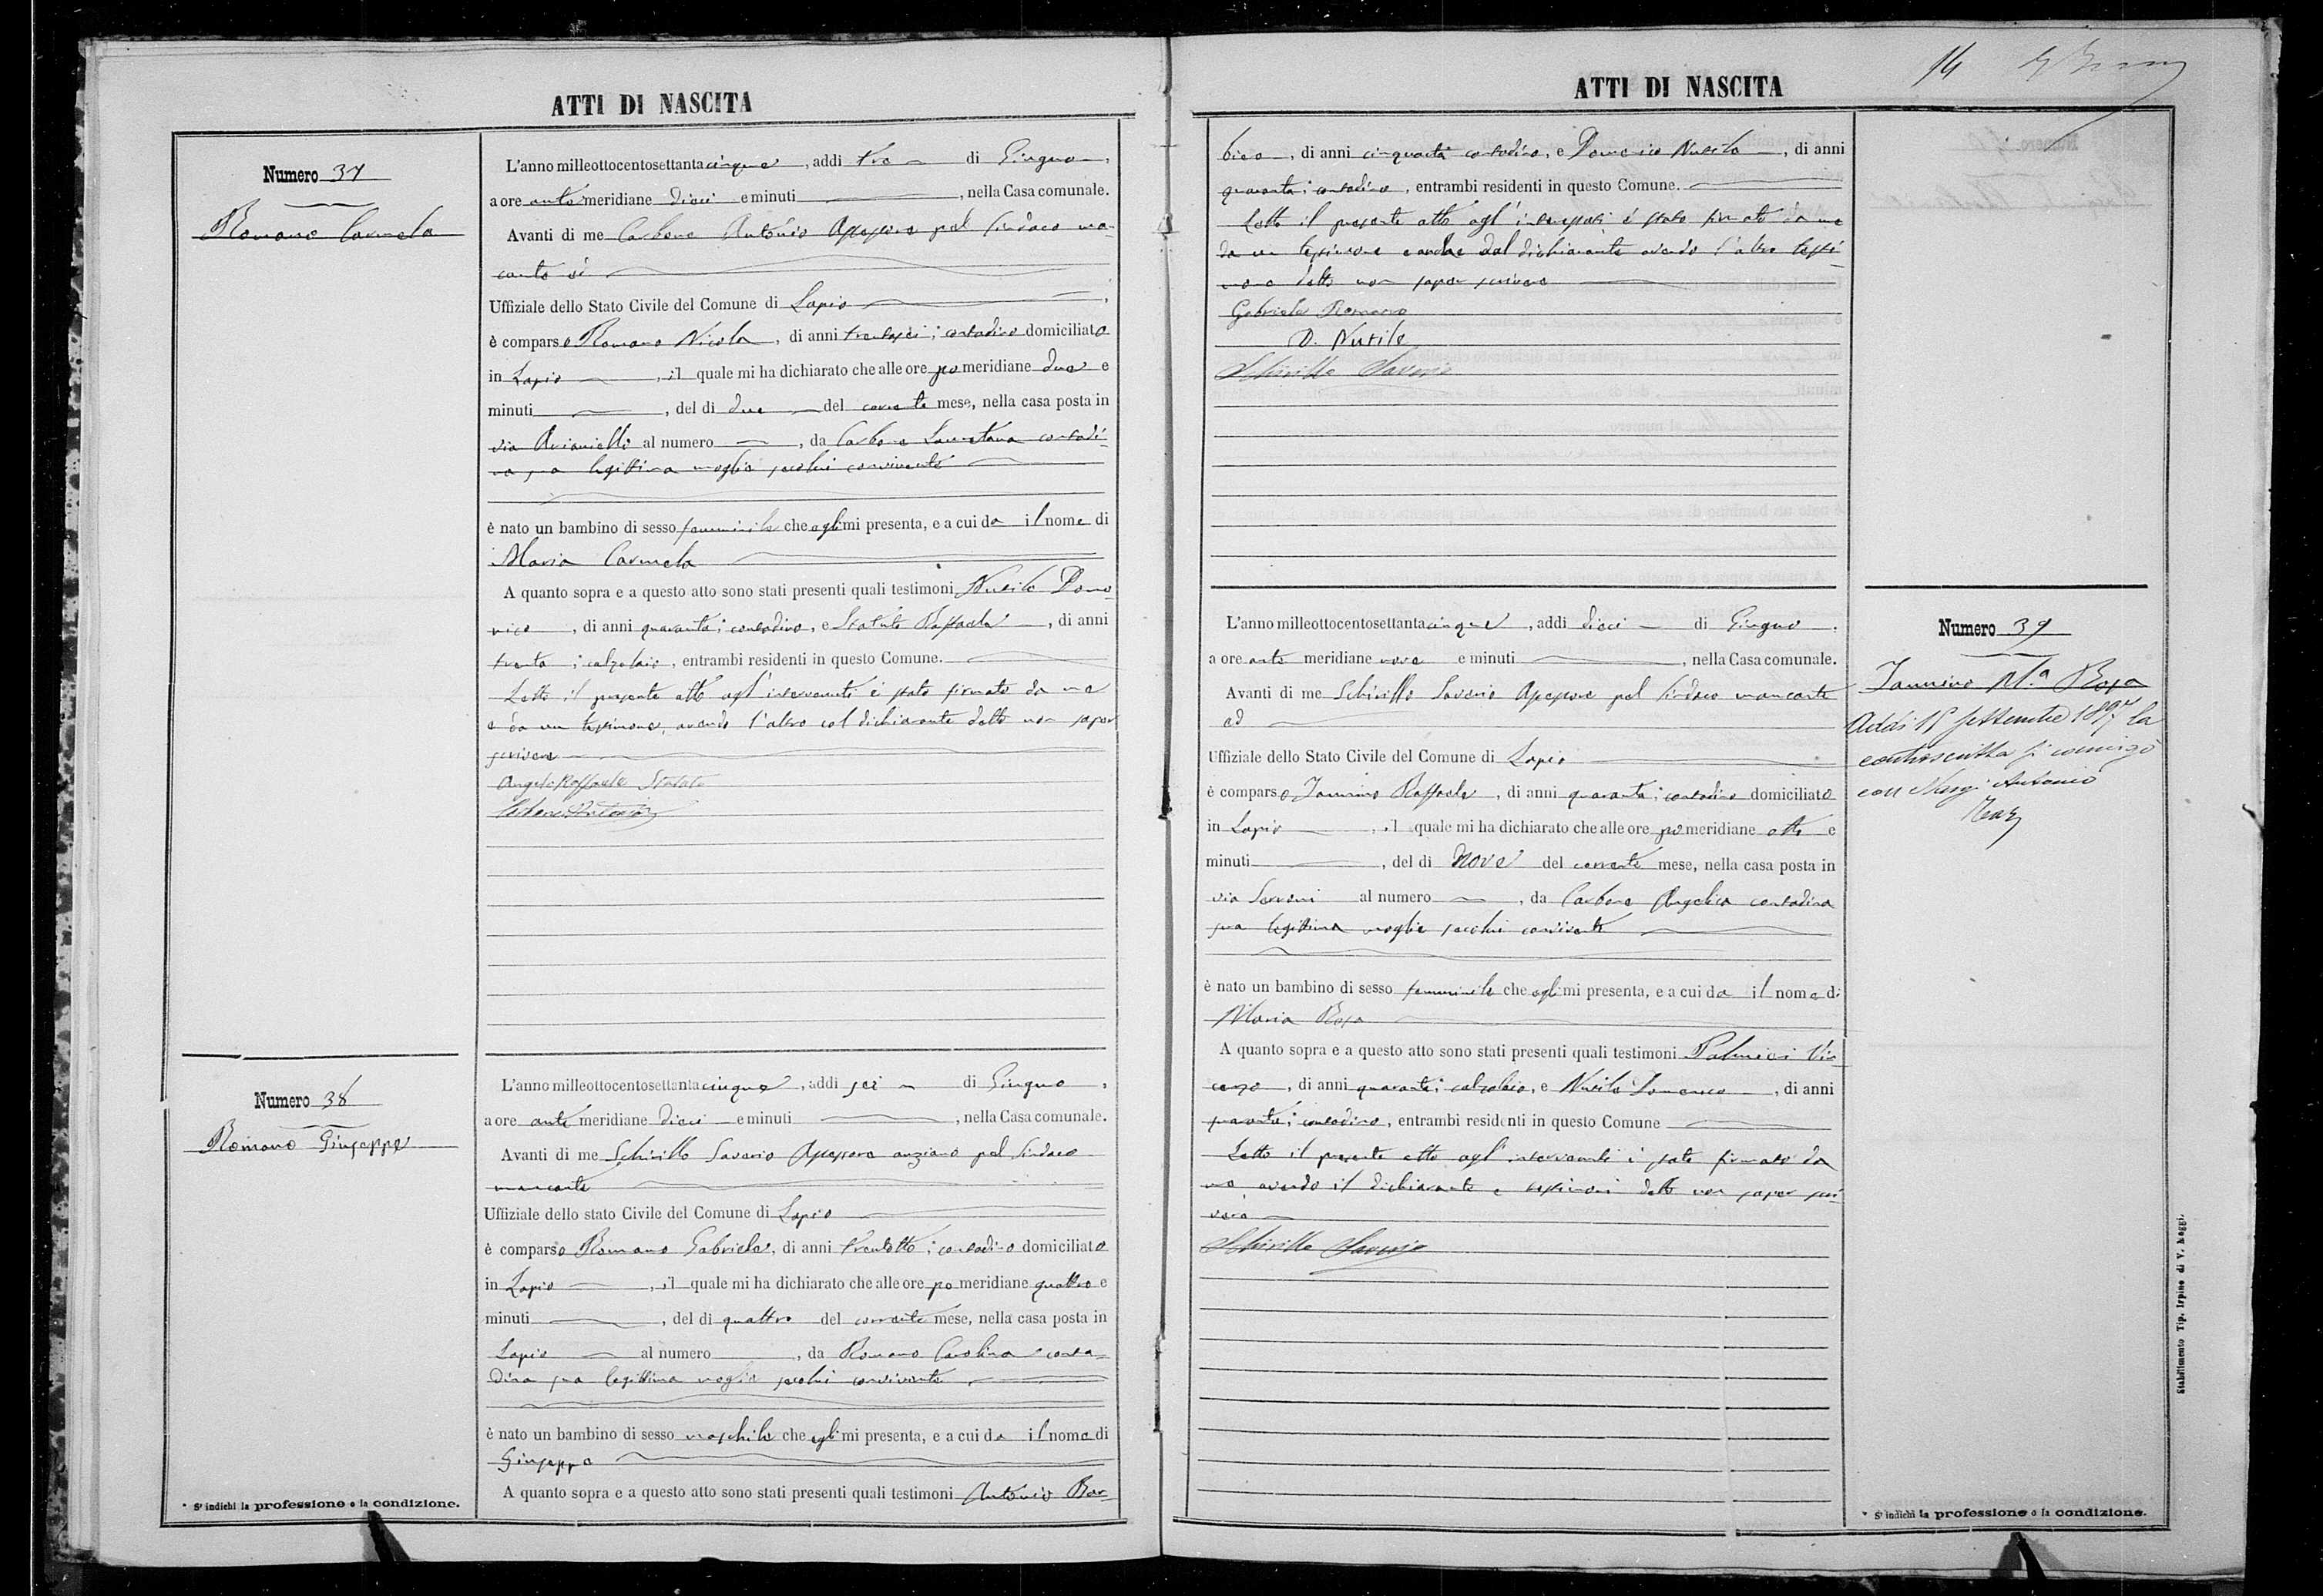 ATTI DI NASCITA
Numero 37
Romano Carmela
L'anno milleottocentosettantacinque, addi tre di Giugno,
a ore anti meridiane dieci e minuti, nella Casa comunale.
Avanti di me Carbone Antonio Assessore pel Sindaco man-
cante ed
Uffiziale dello Stato Civile del Comune di Lapio,
è comparso Romano Nicola, di anni trentasei; contadino domiciliato
in Lapio, il quale mi ha dichiarato che alle ore pomeridiane due e
minuti, del di due del corrente mese, nella casa posta in
via Arianielli al numero, da Carbone Lauretana contadi-
na sua legittima moglie secolui convivente
è nato un bambino di sesso femminile che egli mi presenta, e a cui da il nome di
Maria Carmela
A quanto sopra e a questo atto sono stati presenti quali testimoni Nusilo Dome
nico, di anni quaranta; contadino, e Statuto Raffaele, di anni
trenta; calzolaio, entrambi residenti in questo Comune.
Letto il presente atto agl'intervenuti è stato firmato da me
e da un testimone, avendo l'altro col dichiarante detto non saper
scrivere
Angelo Raffaele Statuto
Carbone Antonio
Numero 38
Romano Giuseppe
L'anno milleottocentosettantacinque, addi sei di Giugno,
a ore anti meridiane dieci e minuti, nella Casa comunale.
Avanti di me Schirillo Saverio Assessore anziano pel Sindaco
mancante
Uffiziale dello stato Civile del Comune di Lapio
è comparso Romano Gabriele, di anni trentotto; contadino domiciliato
in Lapio, il quale mi ha dichiarato che alle ore po meridiane quattro e
minuti, del di quattro del corrente mese, nella casa posta in
Lapio al numero, da Romano Carolina conta-
dina sua legittima moglie secolui convivente
è nato un bambino di sesso maschile che egli mi presenta, e a cui da il nome di
Giuseppe
A quanto sopra e a questo atto sono stati presenti quali testimoni Antonio Bar-
* S'indichi la professione o la condizione.
14
ATTI DI NASCITA
bieo, di anni cinquanta contadino, e Domenico Nusilo, di anni
quaranta; contadino, entrambi residenti in questo Comune.
Letto il presente atto agl'intervenuti è stato firmato da me
da un testimone e anche dal dichiarante avendo l'altro testi-
mone detto non saper scrivere
Gabriele Romano
D. Nusilo
Schirillo Saverio
Numero 39
Iannino M.ª Rosa
Addì 15 settembre 1897 la
controscritta si coniugò
con Antonio
L'anno milleottocentosettantacinque, addi dieci di Giugno.
a ore anti meridiane nove e minuti, nella Casa comunale.
Avanti di me Schirillo Saverio Assessore pel Sindaco mancante
ed
Uffiziale dello Stato Civile del Comune di Lapio
è comparso Iannino Raffaele, di anni quaranta; contadino domiciliato
in Lapio, il quale mi ha dichiarato che alle ore pomeridiane otto e
minuti, del di nove del corrente mese, nella casa posta in
via al numero, da Carbone Angelica contadina
sua legittima moglie secolui convivente
è nato un bambino di sesso femminile che egli mi presenta, e a cui da il nome di
Maria Rosa
A quanto sopra e a questo atto sono stati presenti quali testimoni Palmieri Vin
cenzo, di anni quaranta; calzolaio, e Nusilo Domenico, di anni
quaranta; contadino, entrambi residenti in questo Comune
Letto il presente atto agl'intervenuti è stato firmato da
me avendo il dichiarante e testimoni detto non saper scri
vere
Schirillo Saverio
* S'indichi la professione o la condizione.
Stabilimento Tip. Irpino di V. Maggi.